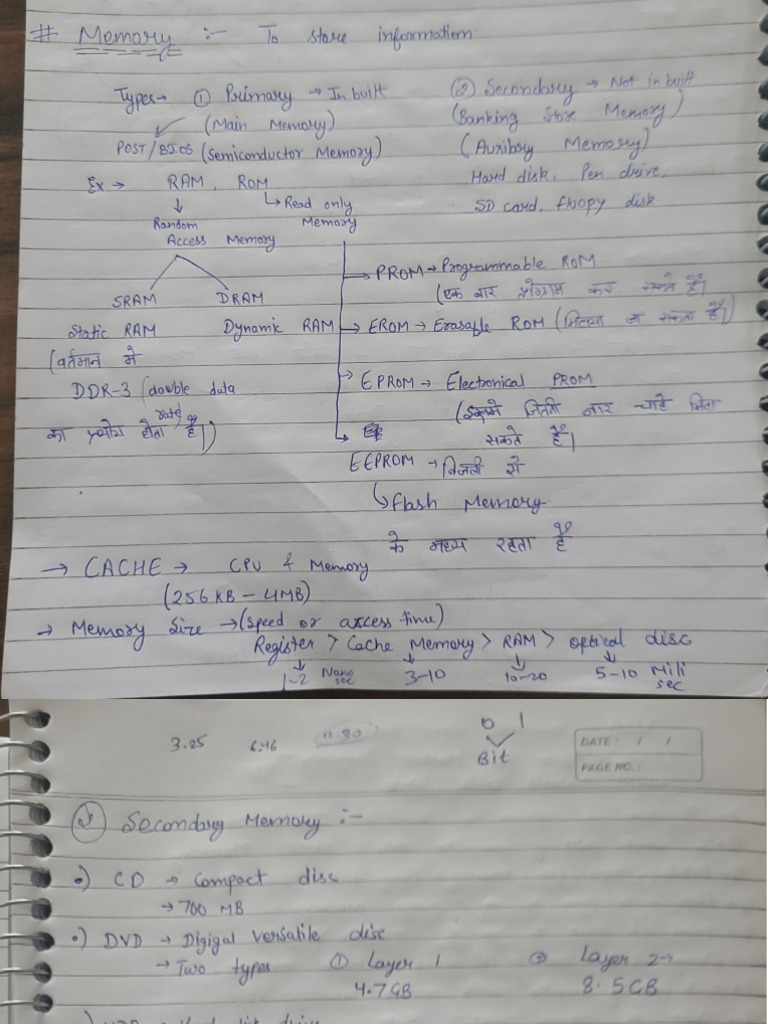 # Memory :- To store information
Types→ ① Primary → In built
(Main Memory)
POST/BIOS (Semiconductor Memory)
② Secondary → Not in built
(Banking Store Memory)
(Auxibory Memory)
Hard disk, Pen drive,
SD card, floopy disk
Ex → RAM, ROM
↳ Read only Memory
Random Access Memory
SRAM DRAM
Static RAM Dynamic RAM
(वर्तमान मे
DDR-3 (double data
rate)
का प्रयोग होता है।)
→ PROM → Programmable ROM
(एक बार प्रोग्राम कर सकते है।
→ EROM → Erasable ROM (मिटाया जा सकता है।)
→ EPROM → Electronical PROM
(इसमे जितनी बार चाहे मिटा
सकते है।
EEPROM → बिजली से
↳ Flash Memory
→ CACHE → CPU & Memory के मध्य रहता है
(256 KB - 4MB)
→ Memory Size → (Speed or access time)
Register > Cache Memory > RAM > optical disc
1-2 Nano sec 3-10 10-20 5-10 Mili sec
3.25 6.46 11.80
0 1
Bit
DATE: / /
PAGE NO.:
② Secondary Memory :-
•) CD → Compact disc
→ 700 MB
•) DVD → Digigal versatile disc
→ Two types ① Layer 1 ② Layer 2→
4.7GB 8.5GB